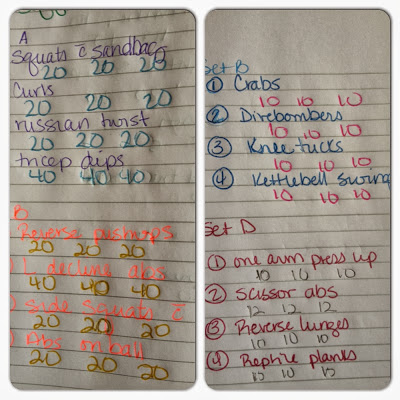 A
squats c̄ sandbag
20 20 20
Curls
20 20 20
russian twist
20 20 20
tricep dips
40 40 40
B
Reverse pushups
20 20 20
L decline abs
40 40 40
side squats c̄
20 20 20
Abs on ball
20 20 20
set B
① Crabs
10 10 10
② Divebombers
10 10 10
③ Knee tucks
10 10 10
④ Kettlebell swing
10 10 10
set D
① one arm press up
10 10 10
② scissor abs
12 12 12
③ Reverse lunges
10 10 10
④ Reptile planks
10 10 10